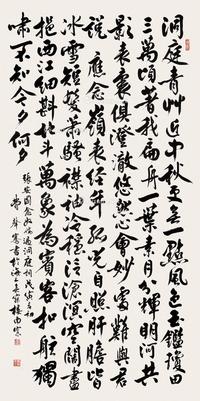 洞庭青草近中秋更無一點風色玉鑑瓊田
三萬頃著我扁舟一葉素月分輝明河共
影表裏俱澄澈悠然心會妙處難與君
說應念嶺表經年孤光自照肝膽皆
冰雪短髮蕭騷襟袖冷穩泛滄溟空闊盡
挹西江細斟北斗萬象為賓客扣舷獨
嘯不知今夕何夕
張安國念奴嬌過洞庭詞戊寅
書於海